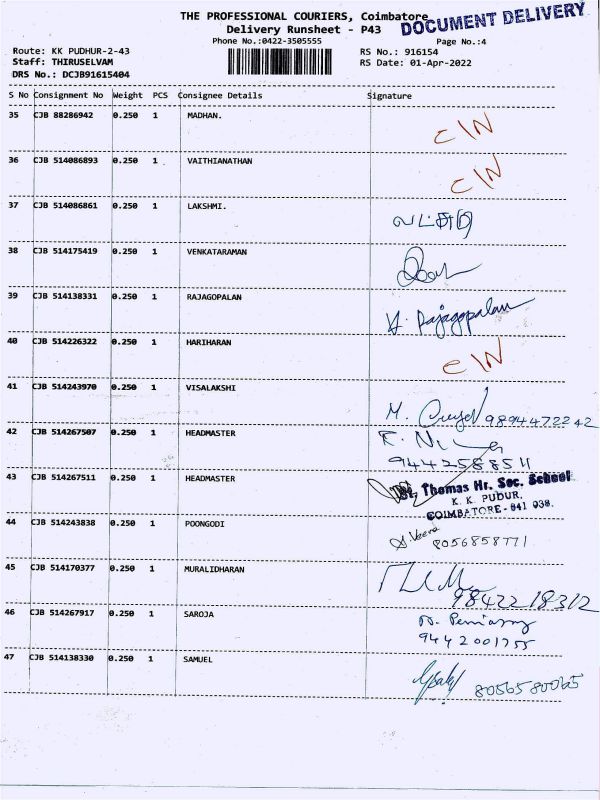 THE PROFESSIONAL COURIERS, Coimbatore
DOCUMENT DELIVERY
Delivery Runsheet - P43
Phone No.:0422-3505555
Page No.:4
Route: KK PUDHUR-2-43
RS No.: 916154
Staff: THIRUSELVAM
RS Date: 01-Apr-2022
DRS No.: DCJB91615404
S No Consignment No Weight PCS Consignee Details Signature
35 CJB 88286942 0.250 1 MADHAN.
C/N
36 CJB 514086893 0.250 1 VAITHIANATHAN
C/N
37 CJB 514086861 0.250 1 LAKSHMI.
38 CJB 514175419 0.250 1 VENKATARAMAN
39 CJB 514138331 0.250 1 RAJAGOPALAN
Rajagopalan
40 CJB 514226322 0.250 1 HARIHARAN
C/N
41 CJB 514243970 0.250 1 VISALAKSHI
M. 9894472242
42 CJB 514267507 0.250 1 HEADMASTER
9442588511
43 CJB 514267511 0.250 1 HEADMASTER
St. Thomas Hr. Sec. School
K. K. PUDUR,
COIMBATORE - 641 038.
44 CJB 514243838 0.250 1 POONGODI
8056858771
45 CJB 514170377 0.250 1 MURALIDHARAN
9842218312
46 CJB 514267917 0.250 1 SAROJA
9442001755
47 CJB 514138330 0.250 1 SAMUEL
8056580065